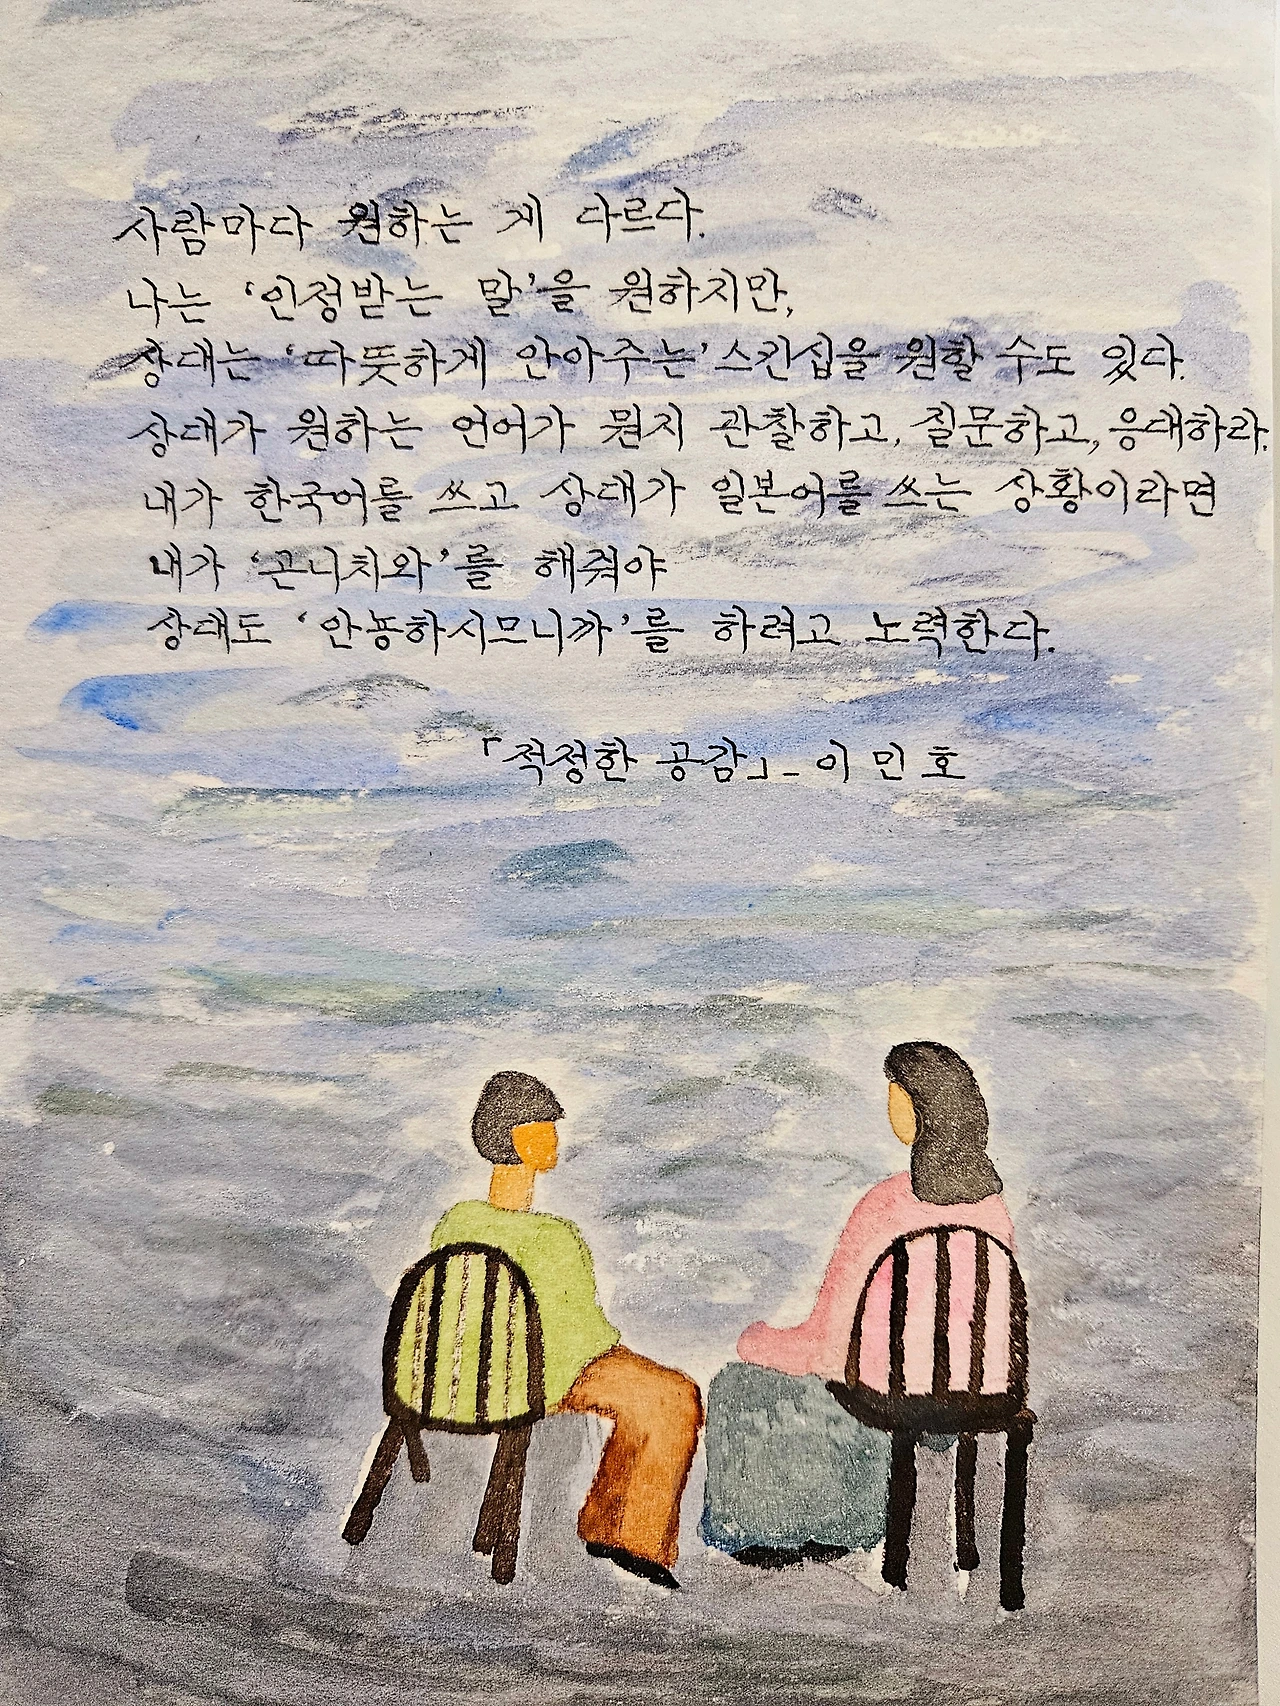 사람마다 원하는 게 다르다.
나는 '인정받는 말'을 원하지만,
상대는 '따뜻하게 안아주는' 스킨십을 원할 수도 있다.
상대가 원하는 언어가 뭔지 관찰하고, 질문하고, 응대하라.
내가 한국어를 쓰고 상대가 일본어를 쓰는 상황이라면
내가 '곤니치와'를 해줘야
상대도 '안뇽하시므니까'를 하려고 노력한다.
「적정한 공감」- 이민호